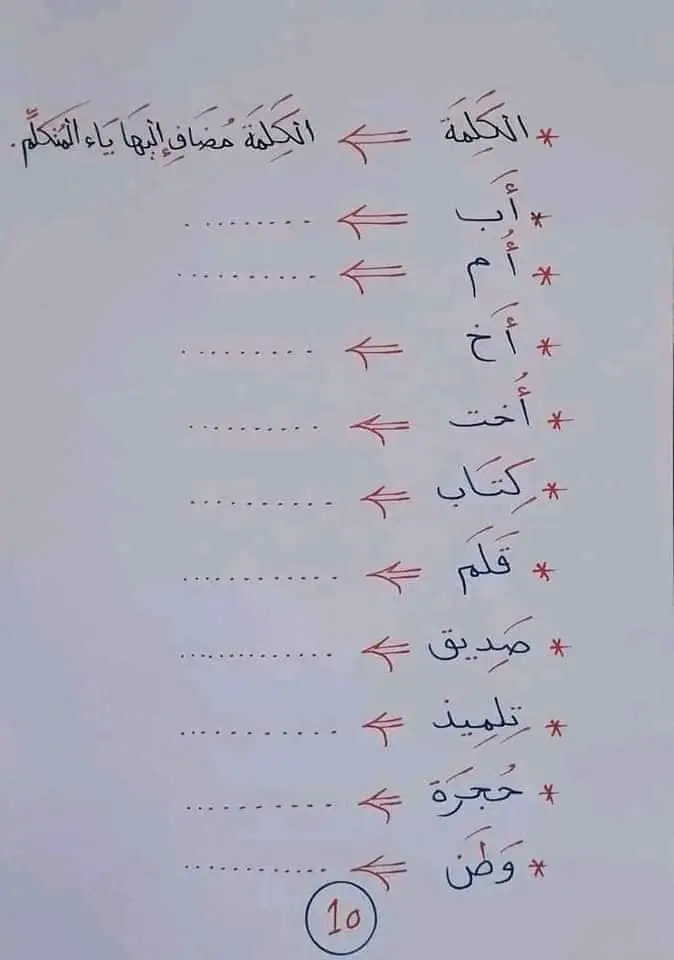 * الكَلِمَة ⇐ الكَلِمَة مُضَاف إِلَيهَا يَاء المُتَكَلِّم.
* أَب ⇐ ........
* أُم ⇐ ..........
* أَخ ⇐ .........
* أُخت ⇐ .........
* كِتَاب ⇐ ..........
* قَلَم ⇐ ...........
* صَدِيق ⇐ ...........
* تِلمِيذ ⇐ ...........
* حُجرَة ⇐ ...........
* وَطَن ⇐ ...........
10